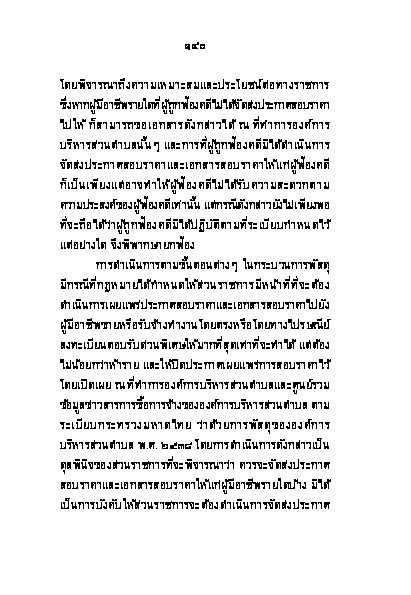 ๑๔๐
โดยพิจารณาถึงความเหมาะสมและประโยชน์ต่อทางราชการ
ซึ่งหากผู้มีอาชีพรายใดที่ผู้ถูกฟ้องคดีไม่ได้จัดส่งประกาศสอบราคา
ไปให้ ก็สามารถขอเอกสารดังกล่าวได้ ณ ที่ทำการองค์การ
บริหารส่วนตำบลนั้นๆ และการที่ผู้ถูกฟ้องคดีมิได้ดำเนินการ
จัดส่งประกาศสอบราคาและเอกสารสอบราคาให้แก่ผู้ฟ้องคดี
ก็เป็นเพียงแต่อาจทำให้ผู้ฟ้องคดีไม่ได้รับความสะดวกตาม
ความประสงค์ของผู้ฟ้องคดีเท่านั้น แต่กรณีดังกล่าวยังไม่เพียงพอ
ที่จะถือได้ว่าผู้ถูกฟ้องคดีมิได้ปฏิบัติตามที่ระเบียบกำหนดไว้
แต่อย่างใด จึงพิพากษายกฟ้อง
การดำเนินการตามขั้นตอนต่างๆ ในกระบวนการพัสดุ
มีกรณีที่กฎหมายได้กำหนดให้ส่วนราชการมีหน้าที่ที่จะต้อง
ดำเนินการเผยแพร่ประกาศสอบราคาและเอกสารสอบราคาไปยัง
ผู้มีอาชีพขายหรือรับจ้างทำงานโดยตรงหรือโดยทางไปรษณีย์
ลงทะเบียนตอบรับด่วนพิเศษให้มากที่สุดเท่าที่จะทำได้ แต่ต้อง
ไม่น้อยกว่าห้าราย และให้ปิดประกาศเผยแพร่การสอบราคาไว้
โดยเปิดเผย ณ ที่ทำการองค์การบริหารส่วนตำบลและศูนย์รวม
ข้อมูลข่าวสารการซื้อการจ้างขององค์การบริหารส่วนตำบล ตาม
ระเบียบกระทรวงมหาดไทย ว่าด้วยการพัสดุขององค์การ
บริหารส่วนตำบล พ.ศ. ๒๕๓๘ โดยการดำเนินการดังกล่าวเป็น
ดุลพินิจของส่วนราชการที่จะพิจารณาว่า ควรจะจัดส่งประกาศ
สอบราคาและเอกสารสอบราคาให้แก่ผู้มีอาชีพรายใดบ้าง มิได้
เป็นการบังคับให้ส่วนราชการจะต้องดำเนินการจัดส่งประกาศ